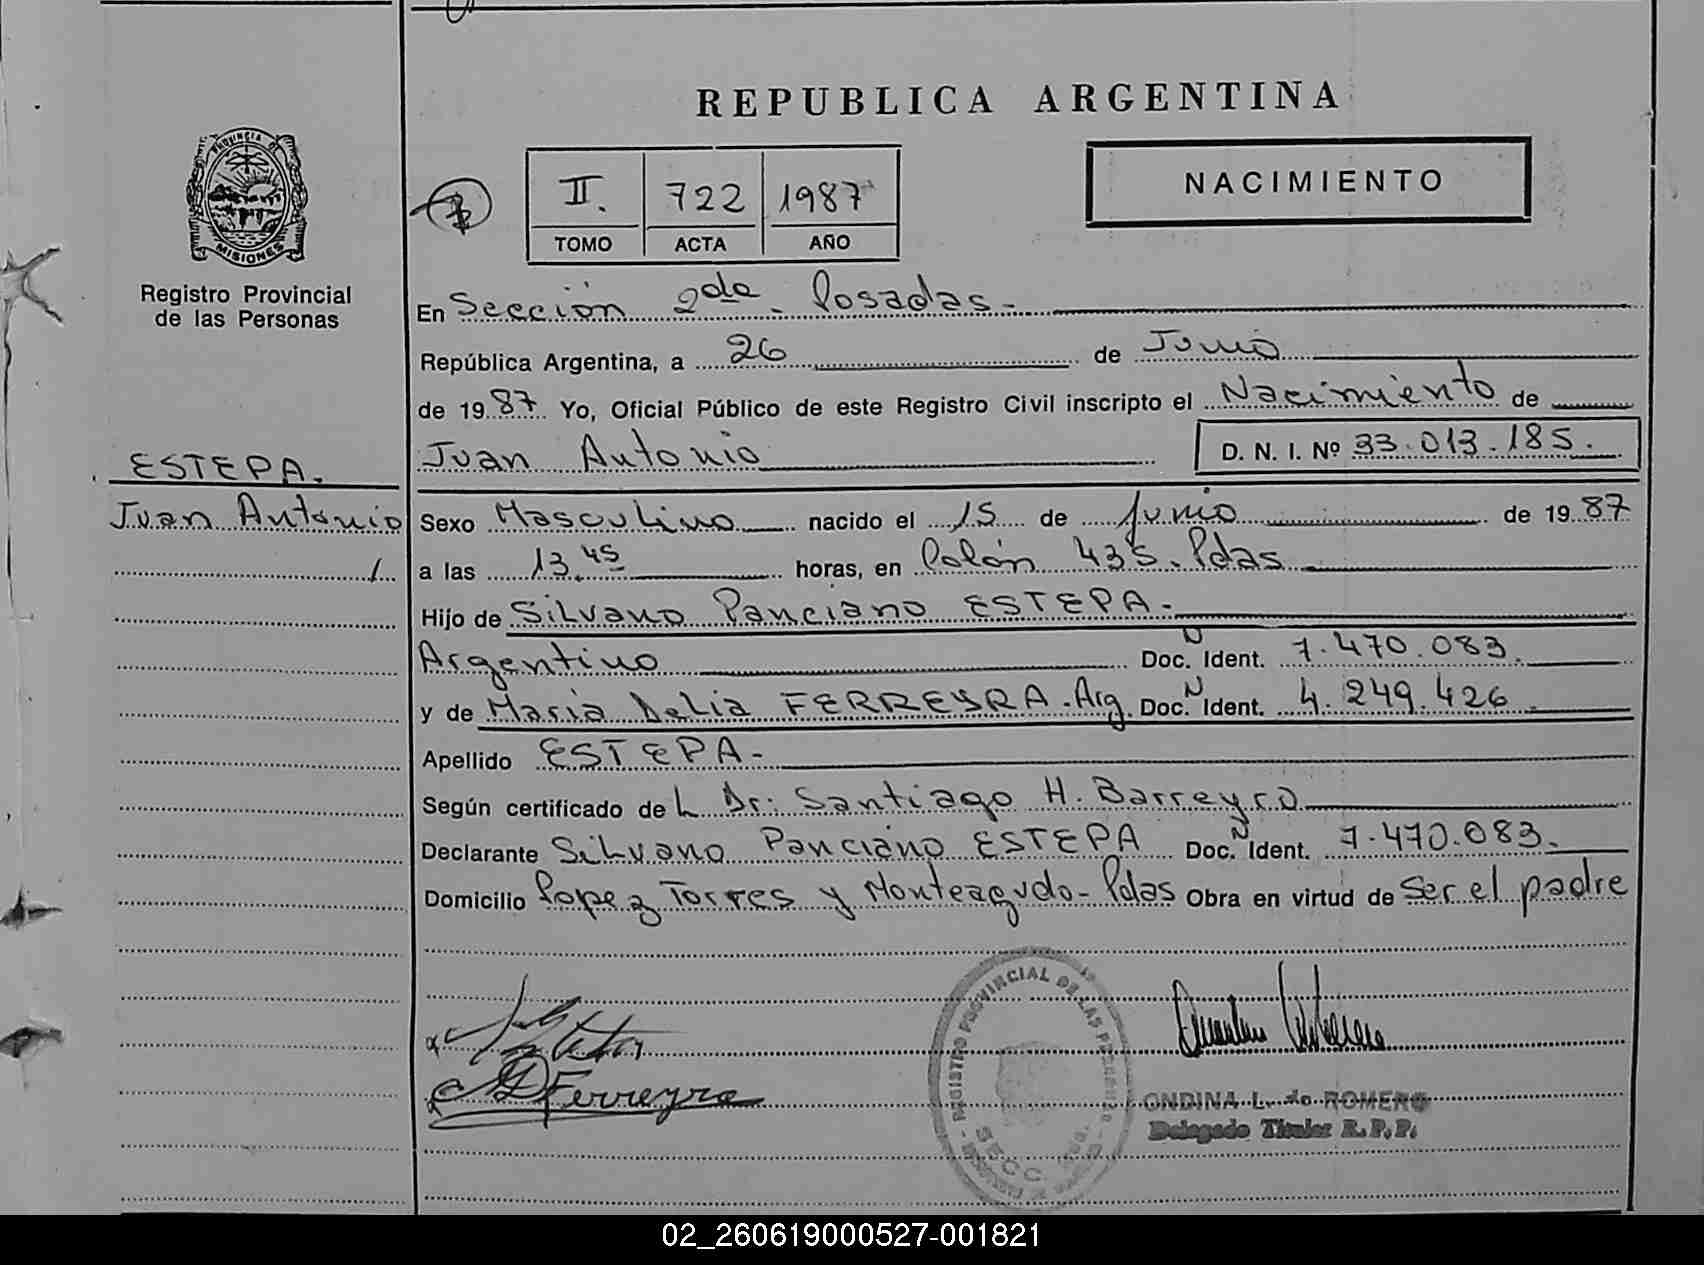 REPUBLICA ARGENTINA
PROVINCIA DE
MISIONES
Registro Provincial
de las Personas
II. 722 1987
TOMO ACTA AÑO
NACIMIENTO
En Sección 2da - Posadas -
República Argentina, a 26 de Junio
de 1987 Yo, Oficial Público de este Registro Civil inscripto el Nacimiento de
Juan Antonio D. N. I. Nº 33.013.185.
ESTEPA.
Juan Antonio
Sexo Masculino nacido el 15 de Junio de 1987
a las 13.45 horas, en Colón 435. Pdas
Hijo de Silvano Panciano ESTEPA -
Argentino Doc. N Ident. 7.470.083.
y de Maria Delia FERREYRA . Arg. Doc. N Ident. 4.249.426.
Apellido ESTEPA -
Según certificado de L Dr: Santiago H. Barreyro
Declarante Silvano Panciano ESTEPA Doc. N Ident. 7.470.083.
Domicilio Lopez Torres y Monteagudo - Pdas Obra en virtud de Ser el padre
Ferreyra
REGISTRO PROVINCIAL DE LAS PERSONAS
SECC
ONDINA L. de ROMERO
Delegado Titular R.P.P.
02_260619000527-001821